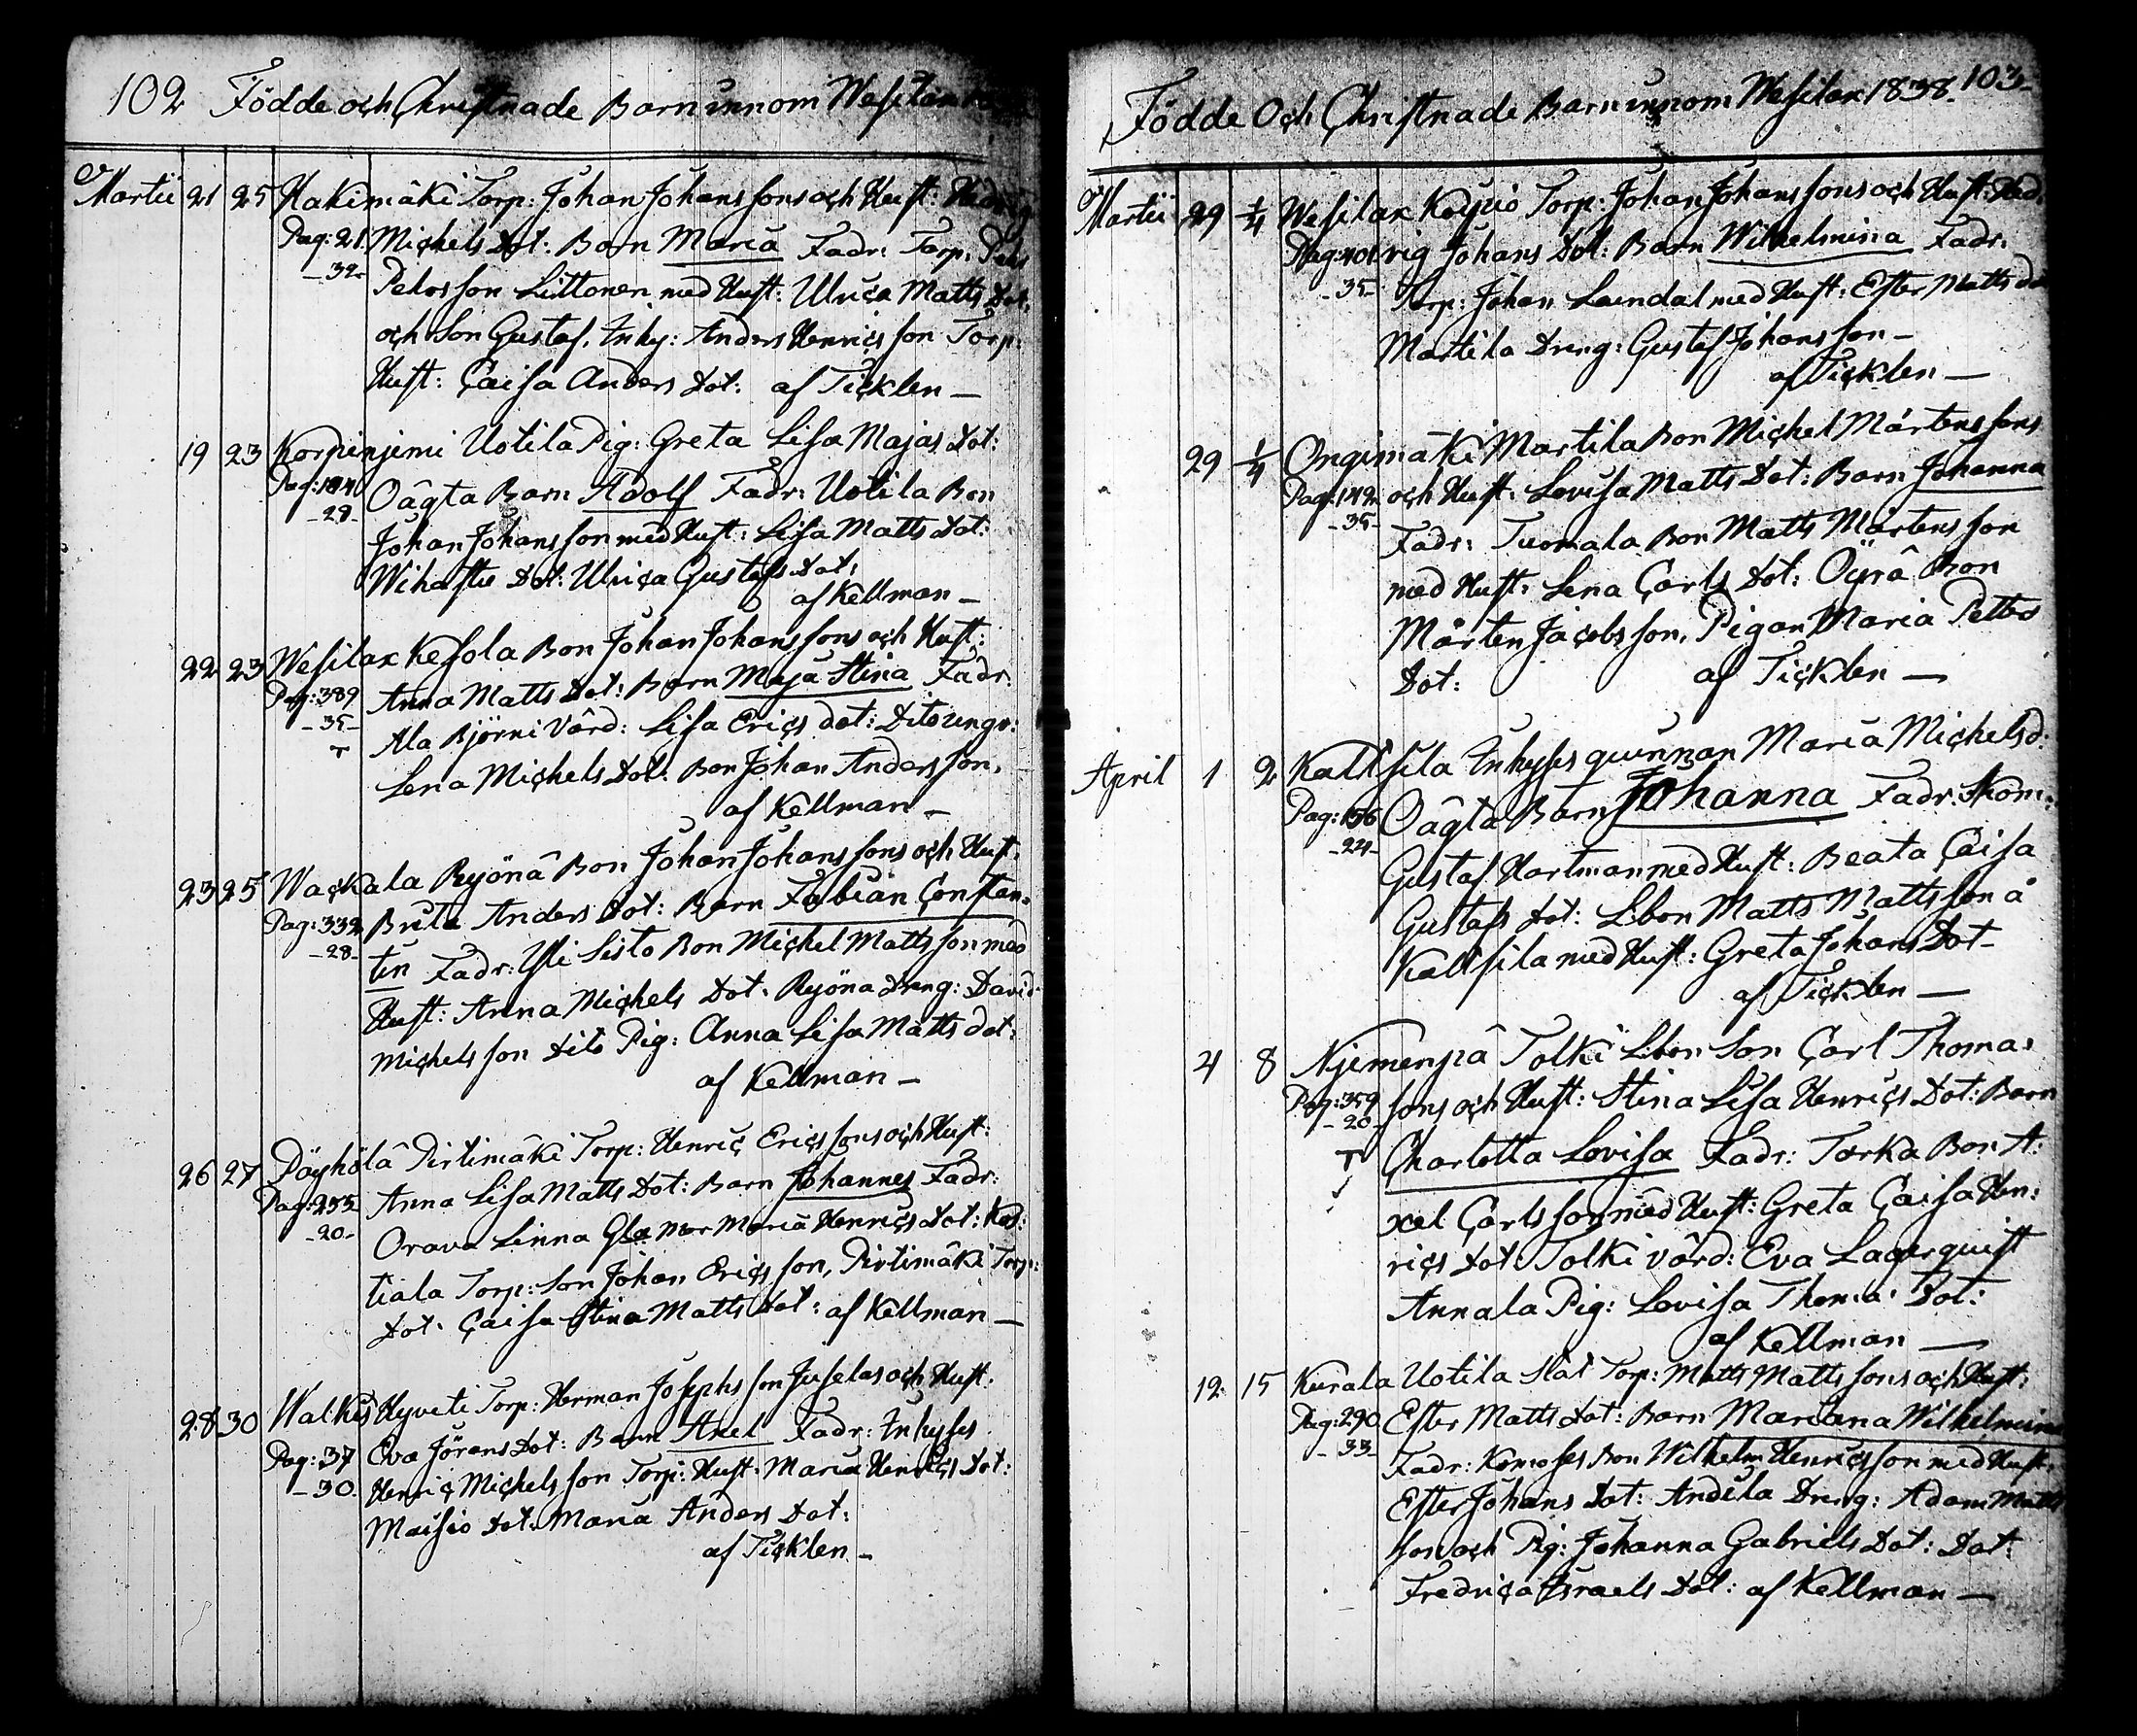 102 Födde och Christnade Barn innom Wesilax
Martii 21 25 Hakimäki Torp: Johan Johanssons och Hust: Hedvig
Pag: 21. Michels Dot: Barn Maria Fadr: Torp.
-32- Petersson Littonen med Hust: Ulrica Matts Dot.
och Son Gustaf, Inhy: Anders Henricsson Torp:
Hust: Caisa Anders Dot: af Ticklen —
19 23 Korpiniemi Uotila Pig: Greta Lisa Majas Dot:
Pag: 184 Oägta Barn Adolf Fadr: Uotila Bon
-28- Johan Johansson med Hust: Lisa Matts Dot:
Dot: Ulrica Gustafs Dot:
af Kellman —
22 23 Wesilax Kesola Bon Johan Johanssons och Hust:
Pag: 389 Anna Matts Dot: Barn Maja Stina Fadr:
-35- Ala Björni Värd: Lisa Erics dot: Dito
T Lena Michels Dot: Bon Johan Andersson,
af Kellman —
23 25 Wackala Reyönä Bon Johan Johanssons och Hust.
Pag: 332 Brita Anders Dot: Barn Fabian Constan-
-28- tin Fadr: Yli Sisto Bon Michel Mattsson med
Hust: Anna Michels Dot. Reyönä Dreng: David
Michelsson Dito Pig: Anna Lisa Matts dot:
af Kellman —
26 27 Pöyhölä Pirtimäki Torp: Henric Ericssons och Hust:
Pag: 255 Anna Lisa Matts Dot: Barn Johannes Fadr:
-20- Orava Linna Maria Henrics Dot:
tiala Torp: Son Johan Ericsson, Pirtimäki Torp:
Dot. Caisa Stina Matts Dot: af Kellman —
28 30 Walkis Hyveti Torp: Herman Josephsson Juselas och Hust.
Pag: 37 Eva Jörans Dot: Barn Axel Fadr: Inhyses
-30- Henric Michelsson Torp: Hust. Maria Henrics Dot:
Maisio Dot: Maria Anders Dot:
af Ticklen —
Födde Och Christnade Barn innom Wesilax 1838. 103-
Martii 29 1/4 Wesilax Torp: Johan Johanssons och Hust: Hed-
Pag: 401 vig Johans Dot: Barn Wilhelmina Fadr:
-35- Torp: Johan Lundal med Hust: Ester Matts do
Martila Dreng: Gustaf Johansson —
af Ticklen —
29 1/4 Ongimäki Martila Bon Michel Mårtenssons
Pag: 142 och Hust: Lovisa Matts Dot: Barn Johanna
-35- Fadr: Tuomala Bon Matts Mårtensson
med Hust: Lena Carls Dot: Öyrä Bon
Mårten Jacobsson, Pigan Maria Petters
Dot: af Ticklen —
April 1 2 Kaltsila Inhyses quinnan Maria Michels d:
Pag: 156 Oägta Barn Johanna Fadr: Skom:
-24- Gustaf Hartman med Hust: Beata Caisa
Gustafs Dot: Lbon Matts Mattsson å
Kaltsila med Hust: Greta Johans Dot-
af Ticklen —
4 8 Njemenpä Tolki Lbon Son Carl Thomas
Pag: 359 sons och Hust: Stina Lisa Henrics Dot: Barn
-20- T Charlotta Lovisa Fadr: Torka Bon A:
xel Carlsson med Hust: Greta Caisa Hen:
rics Dot: Tolki värd: Eva Lagerquist
Annala Pig: Lovisa Thomas Dot:
af Kellman —
12 15 Kurala Uotila Torp: Matts Mattssons och Hust:
Pag: 290 Ester Matts Dot: Barn Mariana Wilhelmina
-33- Fadr: Bon Wilhelm Henricsson med Hust.
Ester Johans Dot: Andila Dreng: Adam Matts
son och Pig: Johanna Gabriels Dot: Dot:
Fredrica Israels Dot: af Kellman —